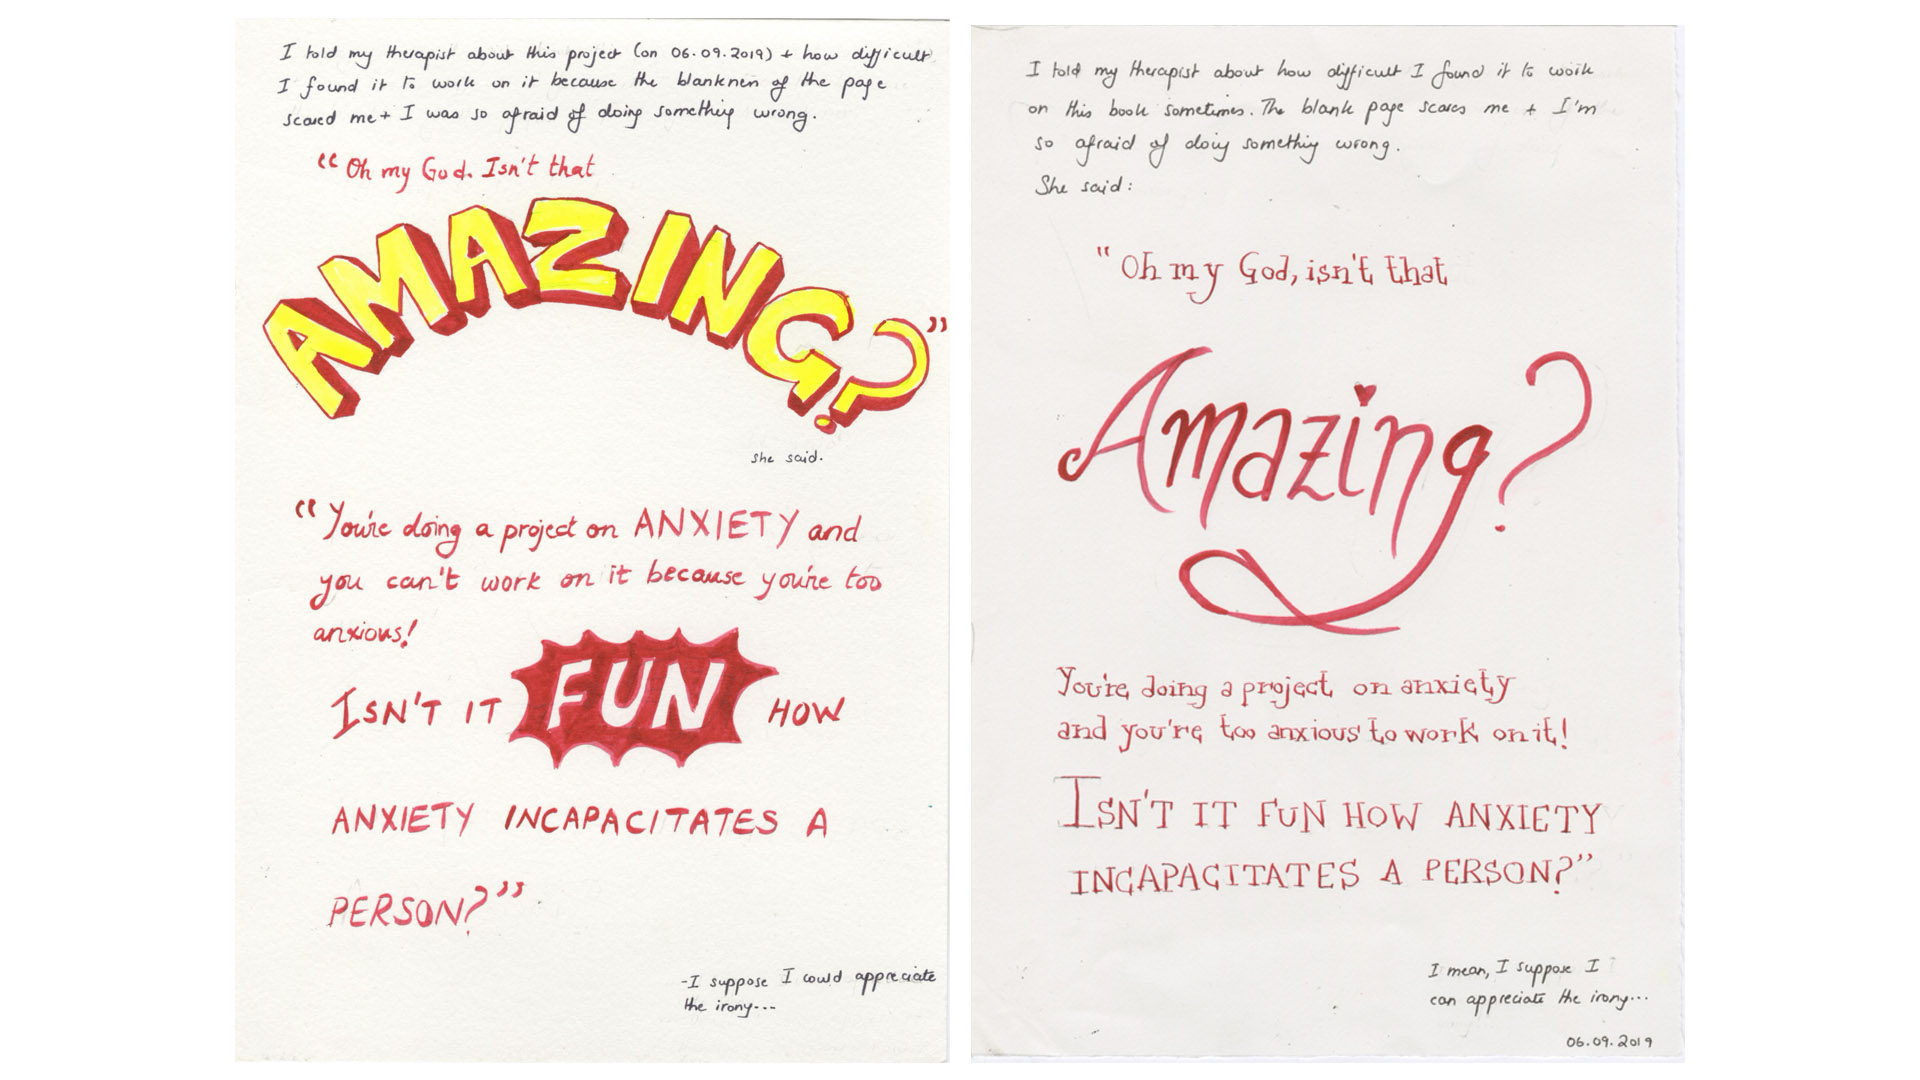 I told my therapist about this project (on 06.09.2019) + how difficult
I found it to work on it because the blankness of the page
scared me + I was so afraid of doing something wrong.
“Oh my God. Isn't that
AMAZING?”
she said.
“You're doing a project on ANXIETY and
you can't work on it because you're too
anxious!
ISN'T IT FUN HOW
ANXIETY INCAPACITATES A
PERSON?”
-I suppose I could appreciate
the irony...
I told my therapist about how difficult I found it to work
on this book sometimes. The blank page scares me + I'm
so afraid of doing something wrong.
She said:
“Oh my God, isn't that
Amazing?
You're doing a project on anxiety
and you're too anxious to work on it!
ISN'T IT FUN HOW ANXIETY
INCAPACITATES A PERSON?”
I mean, I suppose I
can appreciate the irony...
06.09.2019